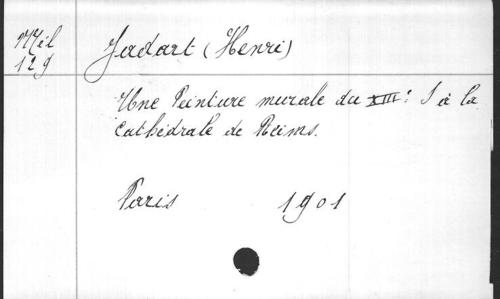 Mél
129
Jadart (Henri)
Une Peinture murale du XIIIe S à la
Cathédrale de Reims.
Paris 1901